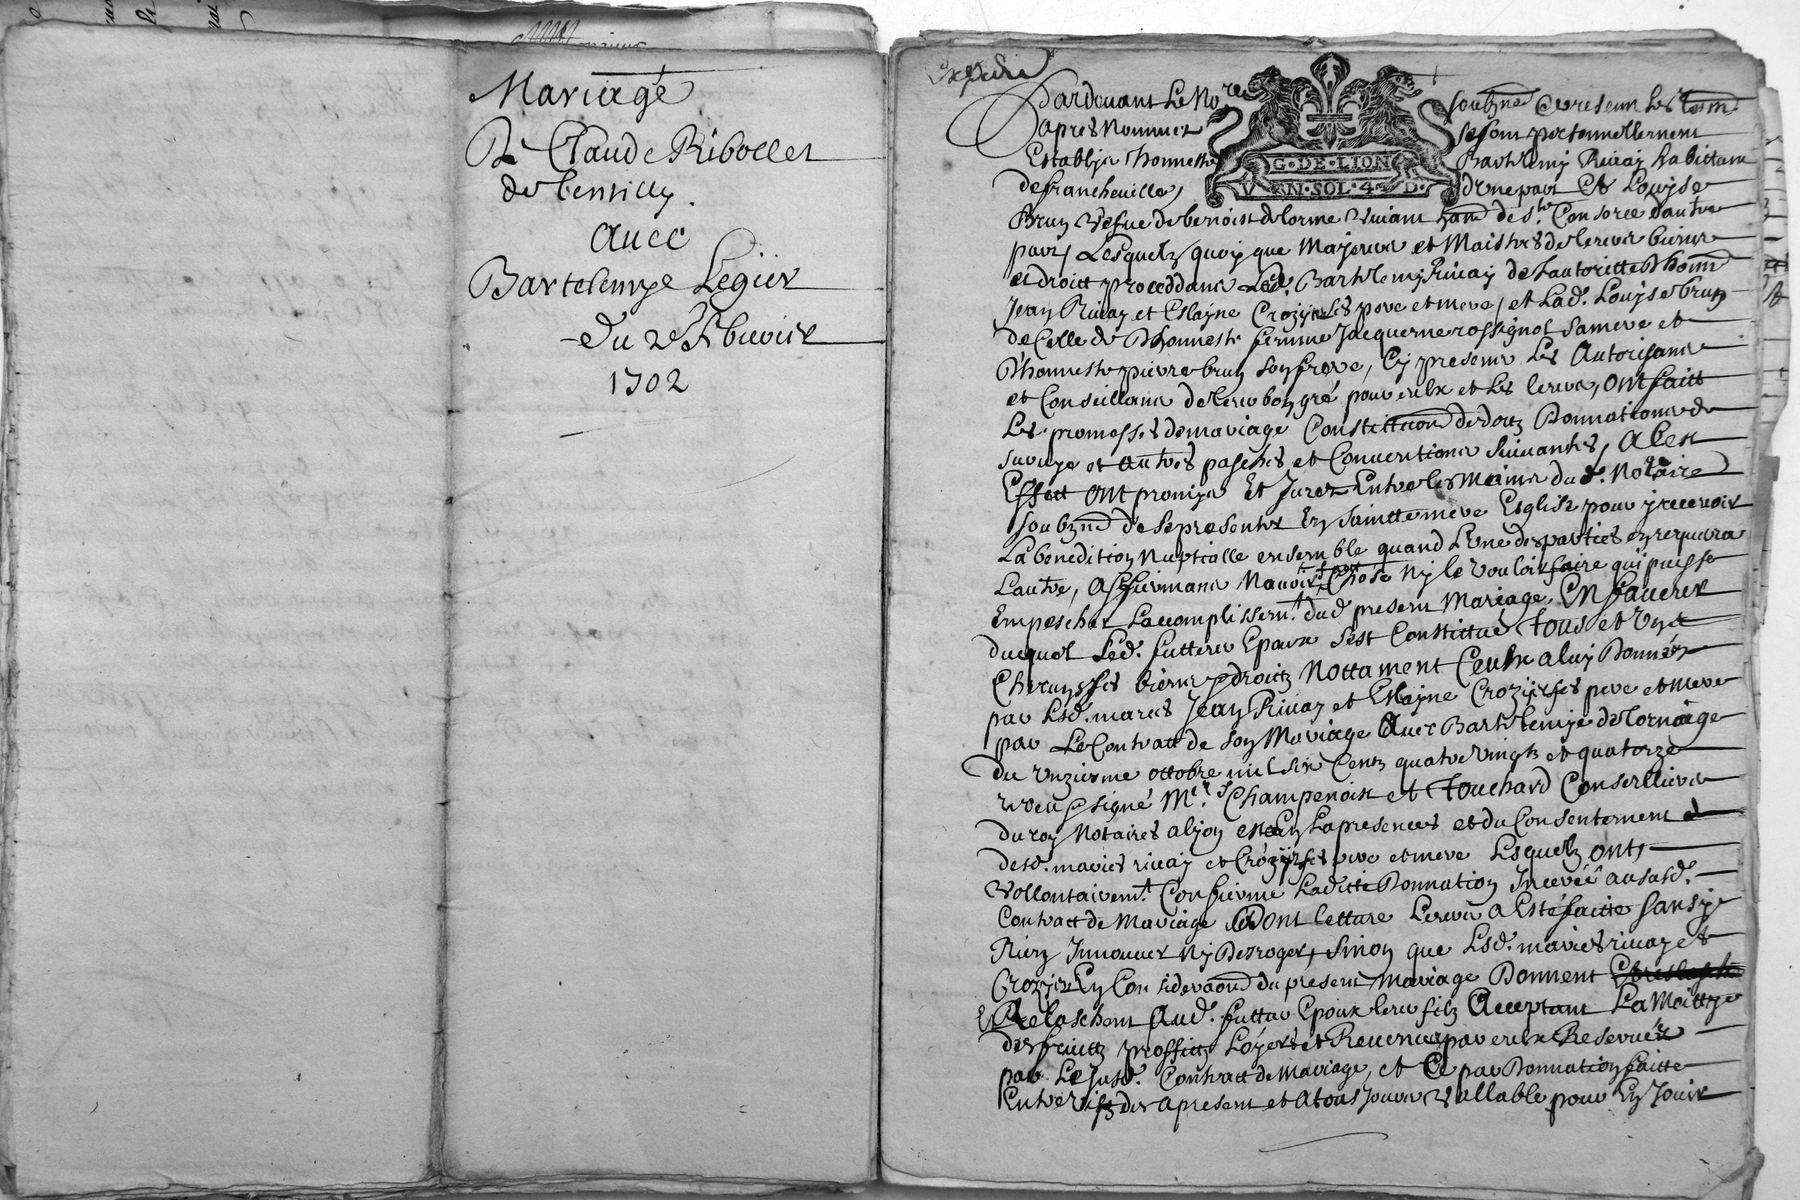 Mariage
De Claude Ribollet
de Lentilly.
avec
Bartelemye Legier
Du 2e Febvrier
1702
Expedié
Pardevant Le No.re soubzné et presens les tesm.
apres Nommez se sont personnellement
Establys honneste Barthelemy Rivay habittant
de francheville, d'une part Et Louyse
Brun vefve de benoist delorme vivant hant de Ste Consorce d'autre
part, Lesquelz quoy que Majeurs et Maistres de leurs biens
et droitt proceddans Led. Barthelemy Rivay de l'autoritte d'honn
Jean Rivay et Elayne Crozier ses pere et mere, et Lad. Louyse brun
de Celle de D'honneste femme Jacqueme rossignol sa mere et
D'honneste pierre brun son frere, Cy presens Les Autorisans
et Conseillans de leur bon gré pour eulx et les leurs, ont faitt
Les promesses de mariage Constittuon de dotz Donnations de
survye et autres pasches et Conventions suivantes, A Cest
Effett ont promis Et Jurez Entre les Mains du d. Notaire
soubzné de se presenter En sainte mere Esglise pour y recevoir
La benedition Nuptialle ensemble quand L'une des parties en requerra
L'autre, Affirmans N'avoir Chose Ny le Vouloir faire qui puisse
Empescher L'accomplissemt dud present Mariage, En faveur
duquel Led. futteur Epoux s'est Constittué tous et Un
Chacuns ses biens droitz Nottament Ceulx a luy Donnés
par Lesd. maries Jean Rivay et Elayne Crozier ses pere et mere
par Le Contratt de son Mariage Avec Barthelemye delornage
Du Unziesme ottobre mil Six Centz quatre vingtz et quatorze
receu signé Mes Champenois et Touchard Conseillers
du roy Notaires a lyon La presence et du Consentement
desd. maries rivay et Crozier ses pere et mere Lesquelz ont
Vollontairemt Confirme Laditte Donnation Inceréé au susd.
Contratt de Mariage Dont letture Leurs a Esté faitte sans y
Rien Innover Ny Desroger, Sinon que Lesd. maries rivay et
Crozier En Consideraon du present Mariage Donnent
Et Relaschent Aud. futtur Epoux leur filz Acceptant La Moittye
des fruitz proffitz Loyers et Revenus par eulx Reservez
par Le Susd. Contratt de Mariage, et Ce par Donnation faitte
Entre vifz des apresent et a tous Jours Vallable pour En Jouir
G·DE·LION
V N·SOL·4 D·